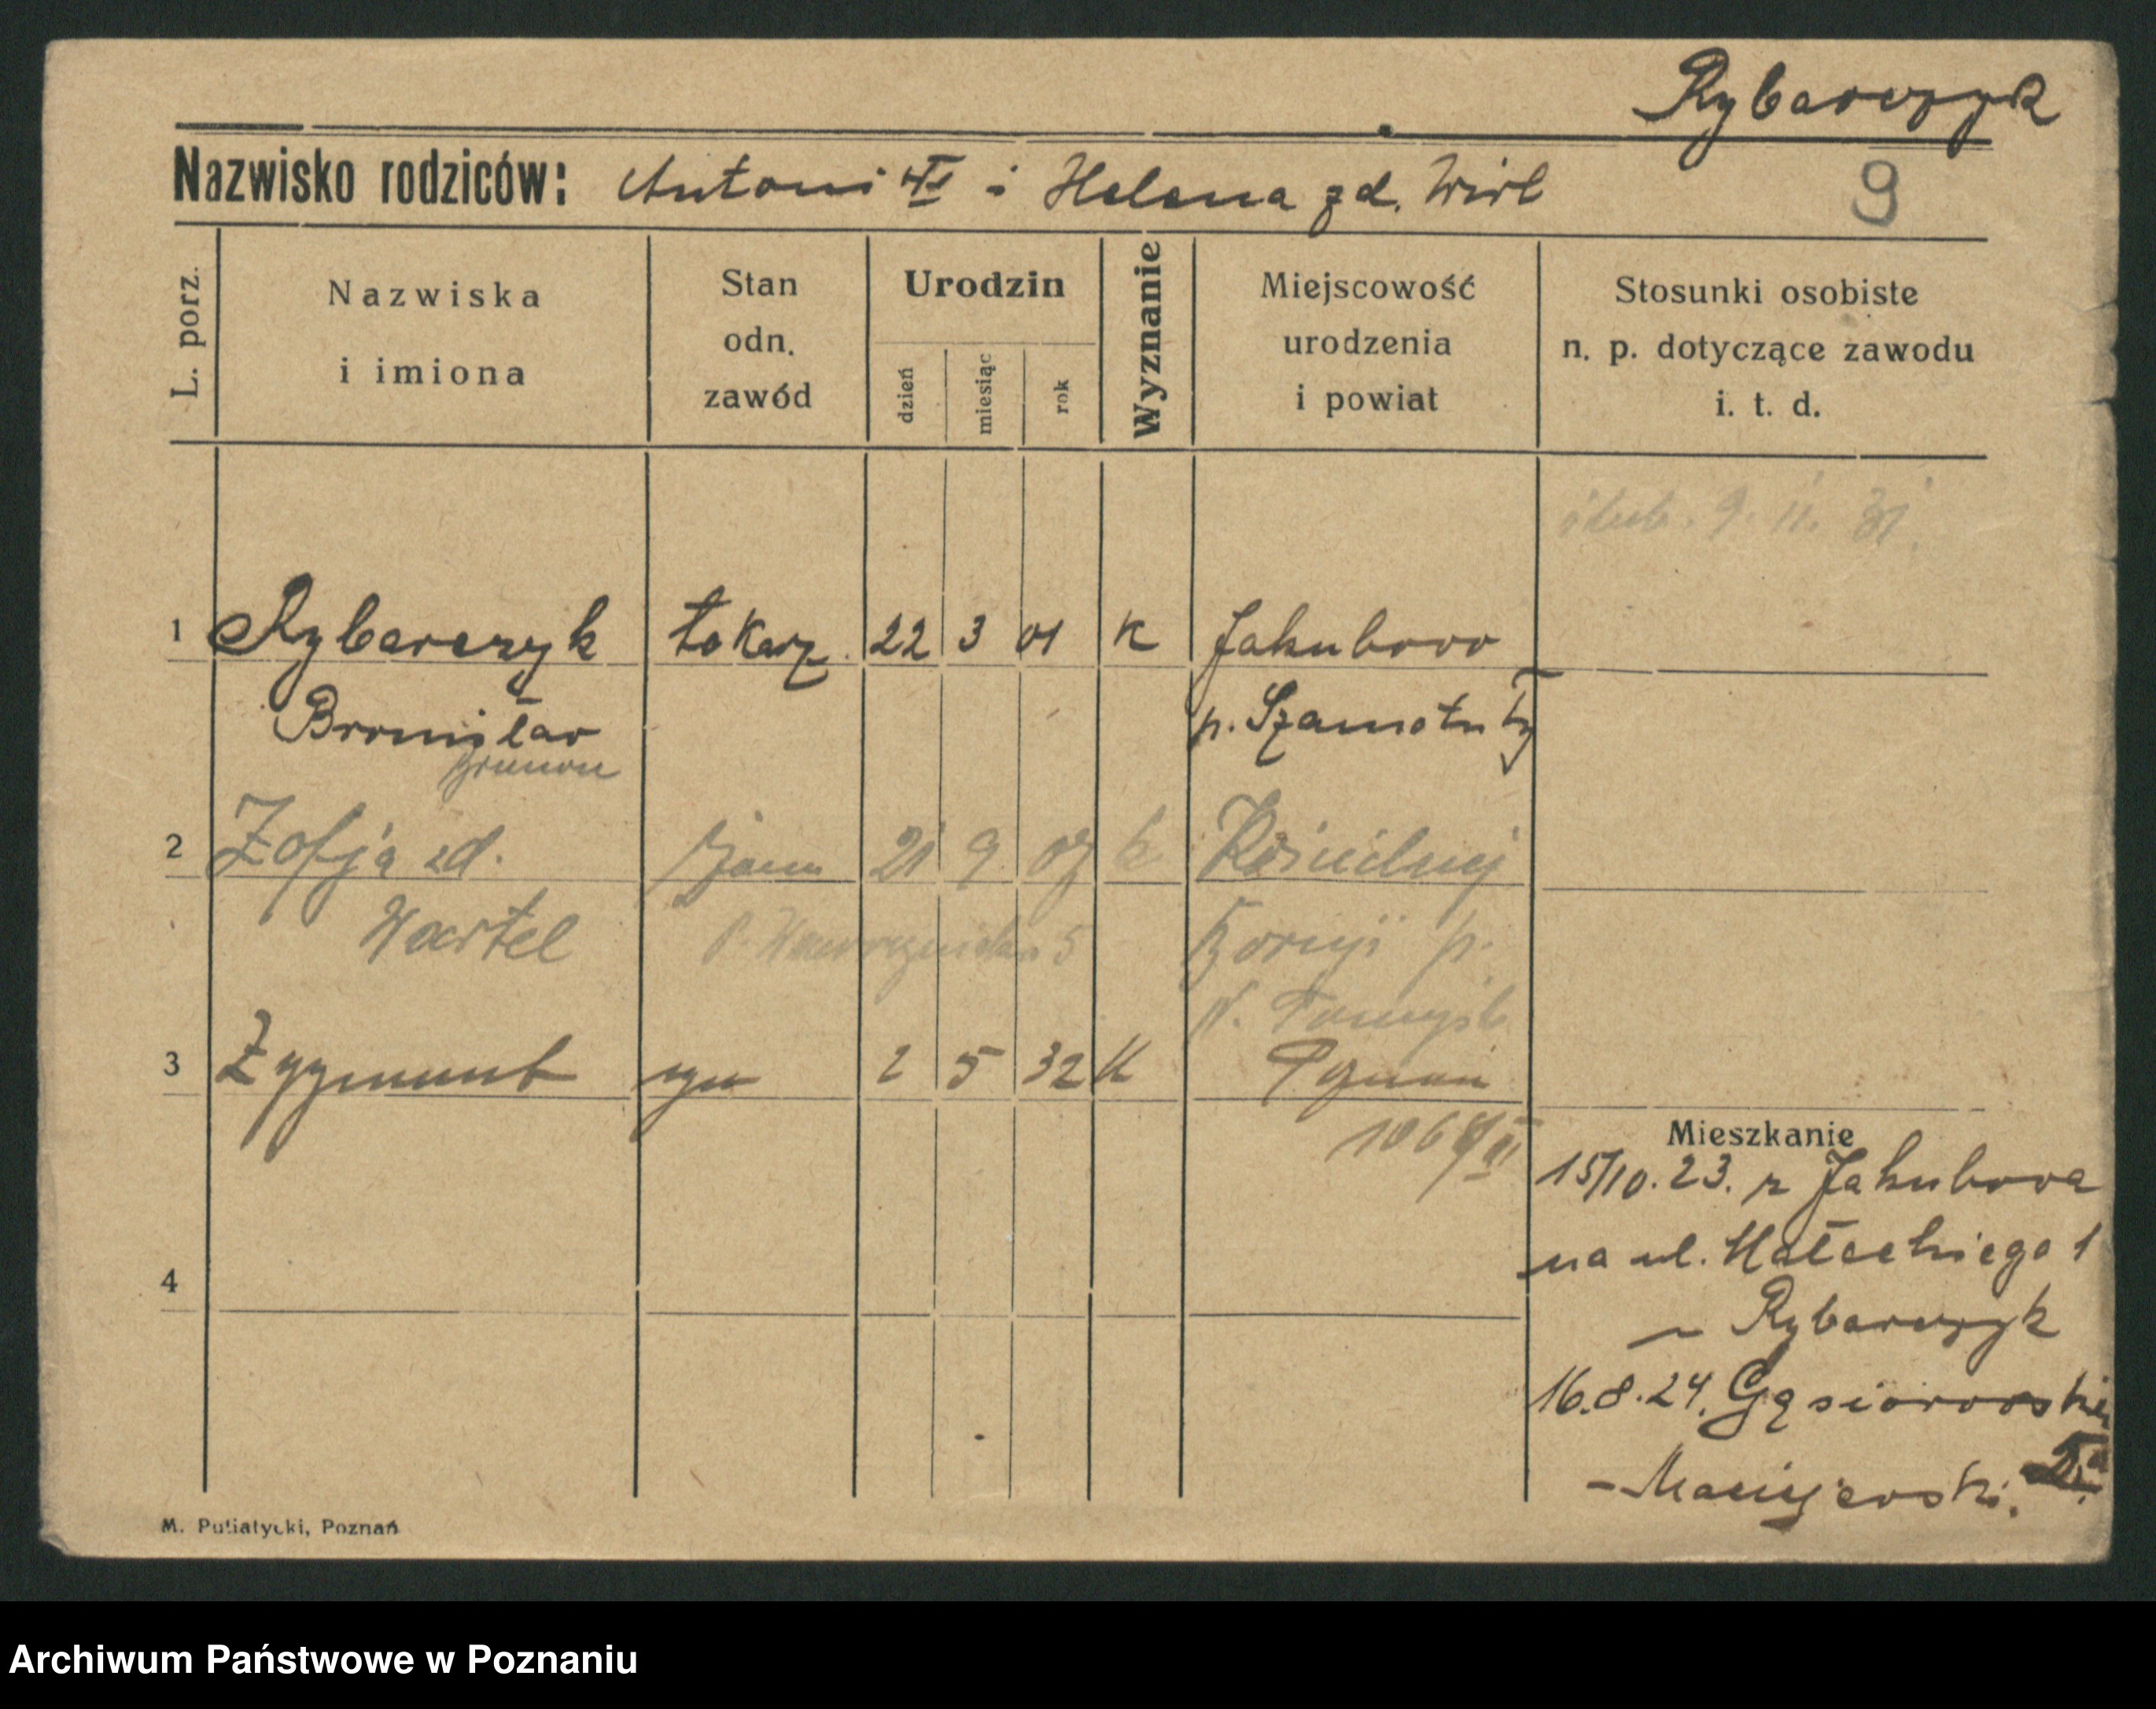 Rybarczyk
Nazwisko rodziców: Antoni i Helena zd. Wirl
9
L. porz.
Nazwiska i imiona
Stan odn. zawód
Urodzin
dzień
miesiąc
rok
Wyznanie
Miejscowość urodzenia i powiat
Stosunki osobiste n. p. dotyczące zawodu i. t. d.
9. 11. 31.
1 Rybarczyk tokarz 22 3 01 K Jakubowo
Bronisław p. Szamotuły
2 Zofja zd. 21 9 07 k
Wartel p.
N. Tomyśl
3 Zygmunt syn 2 5 32 K Poznań
Mieszkanie
15/10.23. z Jakubowa
na ul. Małeckiego 1
4
~ Rybarczyk
16.8.24. Gąsiorowskich
- Maciejewski.
M. Putiatycki, Poznań
Archiwum Państwowe w Poznaniu